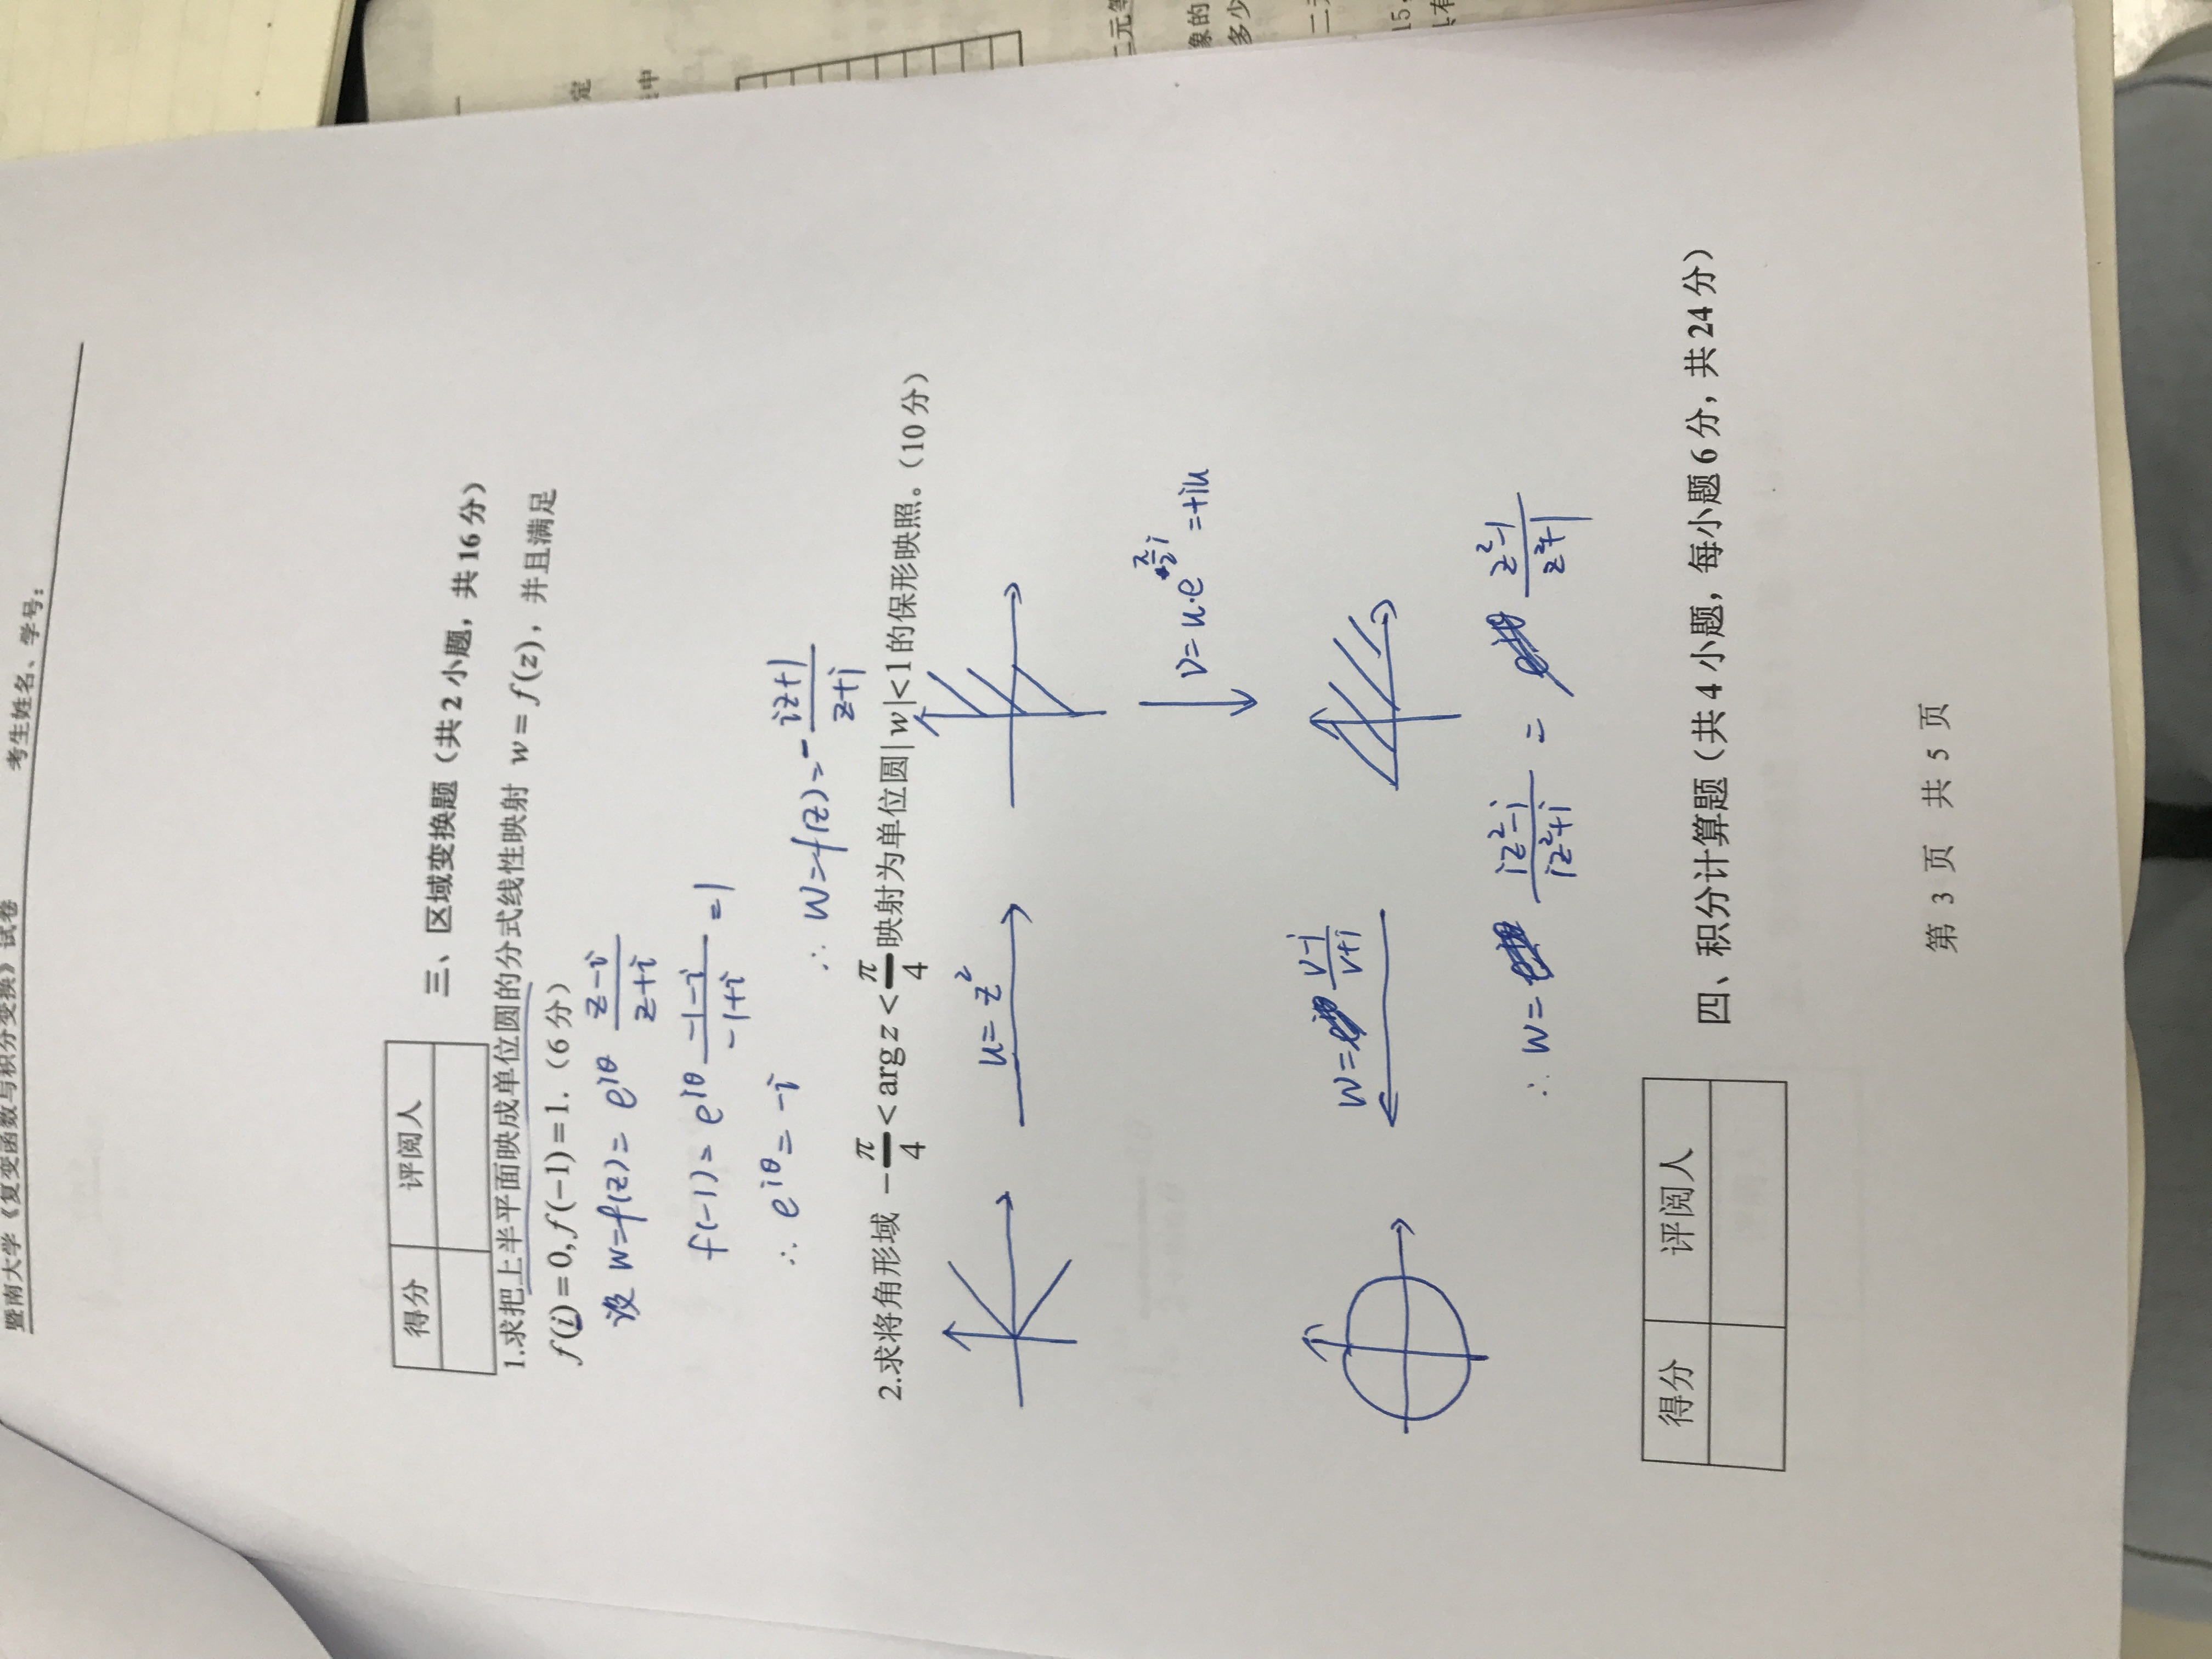 暨南大学《复变函数与积分变换》试卷 考生姓名、学号:
得分 评阅人
三、区域变换题（共 2 小题，共 16 分）
1.求把上半平面映成单位圆的分式线性映射 w = f(z)，并且满足
f(i) = 0, f(-1) = 1.（6 分）
设 w=f(z)= e^{iθ} \frac{z-i}{z+i}
f(-1)= e^{iθ} \frac{-1-i}{-1+i} =1
∴ e^{iθ} = -i
∴ w=f(z)=- \frac{iz+1}{z+i}
2.求将角形域 -\frac{π}{4} < arg z < \frac{π}{4} 映射为单位圆| w |< 1 的保形映照。（10 分）
u= z^2
v= u·e^{\frac{π}{2}i} =+iu
w= \frac{v-i}{v+i}
∴ w= \frac{iz^2-i}{iz^2+i} = \frac{z^2-1}{z^2+1}
得分 评阅人
四、积分计算题（共 4 小题，每小题 6 分，共 24 分）
第 3 页 共 5 页
定
中
二元等
像的
多少
二元
15,
具有